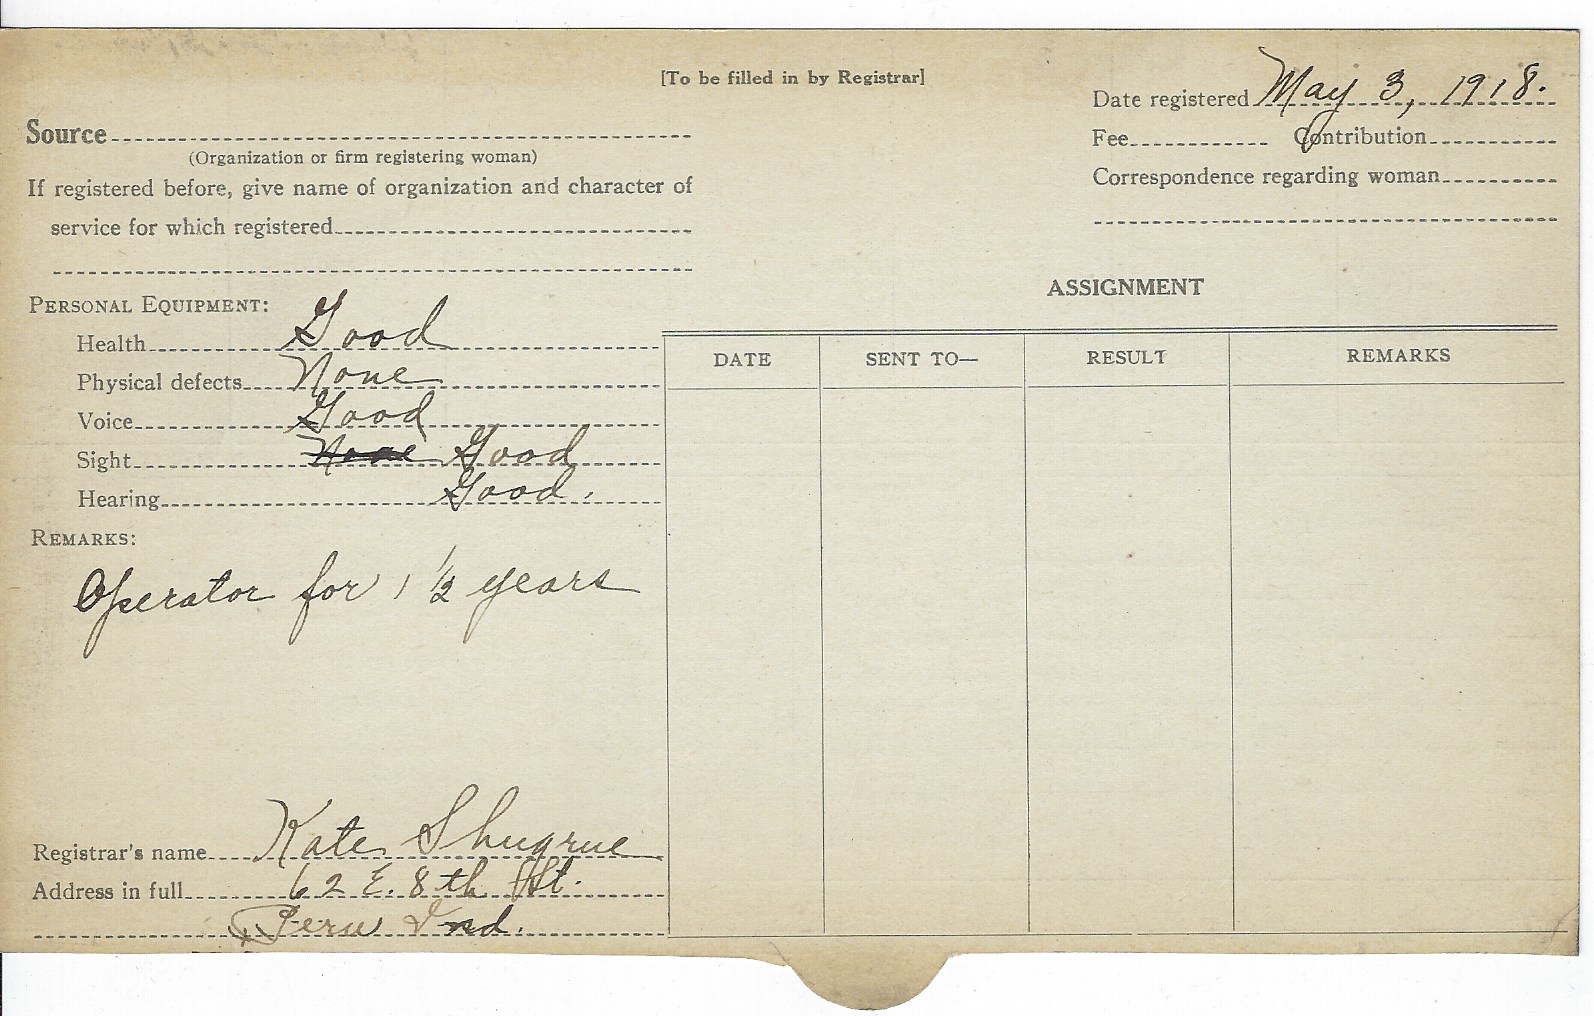 [To be filled in by Registrar]
Date registered May 3, 1918.
Source
(Organization or firm registering woman)
Fee Contribution
If registered before, give name of organization and character of
service for which registered
Correspondence regarding woman
PERSONAL EQUIPMENT:
Health Good
Physical defects None
Voice Good
Sight None Good
Hearing Good.
REMARKS:
Operator for 1 1/2 years
Registrar's name Kate Shugrue
Address in full 62 E. 8th St.
Peru Ind.
ASSIGNMENT
DATE SENT TO— RESULT REMARKS